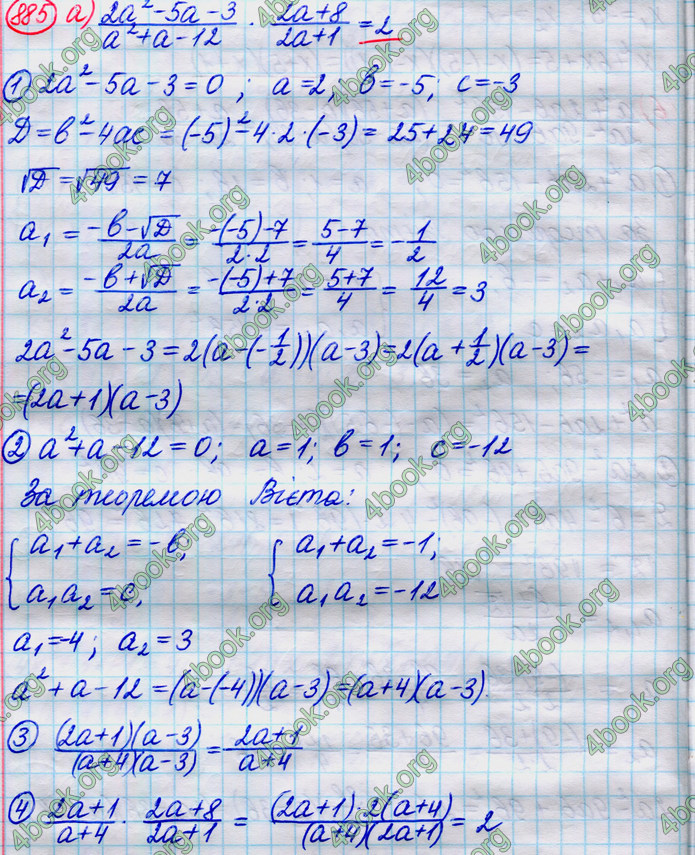 885 а) (2a² - 5a - 3)/(a² + a - 12) · (2a + 8)/(2a + 1) = 2
① 2a² - 5a - 3 = 0 ; a = 2; b = -5; c = -3
Д = b² - 4ac = (-5)² - 4·2·(-3) = 25 + 24 = 49
√Д = √49 = 7
a₁ = (-b - √Д)/(2a) = (-(-5) - 7)/(2·2) = (5 - 7)/4 = -1/2
a₂ = (-b + √Д)/(2a) = (-(-5) + 7)/(2·2) = (5 + 7)/4 = 12/4 = 3
2a² - 5a - 3 = 2(a - (-1/2))(a - 3) = 2(a + 1/2)(a - 3) =
= (2a + 1)(a - 3)
② a² + a - 12 = 0; a = 1; b = 1; c = -12
За теоремою Вієта:
{ a₁ + a₂ = -b, { a₁ + a₂ = -1;
{ a₁a₂ = c, { a₁a₂ = -12
a₁ = -4; a₂ = 3
a² + a - 12 = (a - (-4))(a - 3) = (a + 4)(a - 3)
③ ((2a + 1)(a - 3))/((a + 4)(a - 3)) = (2a + 1)/(a + 4)
④ (2a + 1)/(a + 4) · (2a + 8)/(2a + 1) = ((2a + 1)·2(a + 4))/((a + 4)(2a + 1)) = 2
4book.org